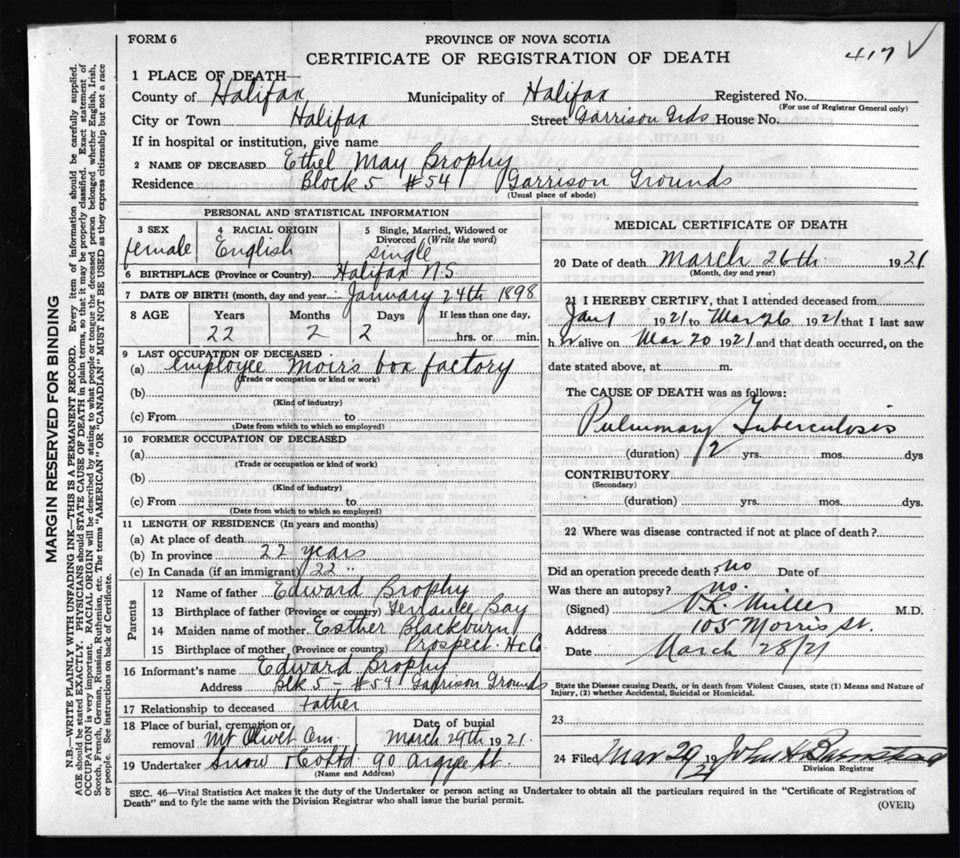 FORM 6
PROVINCE OF NOVA SCOTIA
CERTIFICATE OF REGISTRATION OF DEATH
417 ✓
1 PLACE OF DEATH—
County of Halifax Municipality of Halifax Registered No.
(For use of Registrar General only)
City or Town Halifax Street Garrison Grds House No.
If in hospital or institution, give name
2 NAME OF DECEASED Ethel May Brophy
Residence Block 5 #54 Garrison Grounds
(Usual place of abode)
PERSONAL AND STATISTICAL INFORMATION
3 SEX female
4 RACIAL ORIGIN English
5 Single, Married, Widowed or Divorced (Write the word) single
6 BIRTHPLACE (Province or Country) Halifax N.S
7 DATE OF BIRTH (month, day and year) January 24th 1898
8 AGE Years Months Days If less than one day,
22 2 2 hrs. or min.
9 LAST OCCUPATION OF DECEASED
(a) employee Moir's box factory
(Trade or occupation or kind or work)
(b)
(Kind of industry)
(c) From to
(Date from which to which so employed)
10 FORMER OCCUPATION OF DECEASED
(a)
(Trade or occupation or kind or work)
(b)
(Kind of industry)
(c) From to
(Date from which to which so employed)
11 LENGTH OF RESIDENCE (In years and months)
(a) At place of death
(b) In province 22 years
(c) In Canada (if an immigrant) 22 "
Parents
12 Name of father Edward Brophy
13 Birthplace of father (Province or country) Terrance Bay
14 Maiden name of mother Esther Blackburn
15 Birthplace of mother (Province or country) Prospect. Hx Co
16 Informant's name Edward Brophy
Address Blk 5 - #54 Garrison Grounds
17 Relationship to deceased father
18 Place of burial, cremation or removal Mt Olivet Cem. Date of burial March 29th 1921.
19 Undertaker Snow & Co Ltd 90 Argyle St.
(Name and Address)
MEDICAL CERTIFICATE OF DEATH
20 Date of death March 26th 1921
(Month, day and year)
21 I HEREBY CERTIFY, that I attended deceased from
Jan 1 1921 to Mar 26 1921 that I last saw
h er alive on Mar 20 1921 and that death occurred, on the
date stated above, at m.
The CAUSE OF DEATH was as follows:
Pulmonary Tuberculosis
(duration) 2 yrs. mos. dys
CONTRIBUTORY
(Secondary)
(duration) yrs. mos. dys.
22 Where was disease contracted if not at place of death?
Did an operation precede death? No Date of
Was there an autopsy? No.
(Signed) V.L. Miller M.D.
Address 105 Morris St.
Date March 28/21
State the Disease causing Death, or in death from Violent Causes, state (1) Means and Nature of
Injury, (2) whether Accidental, Suicidal or Homicidal.
23
24 Filed Mar 29 1921 John A
Division Registrar
SEC. 46—Vital Statistics Act makes it the duty of the Undertaker or person acting as Undertaker to obtain all the particulars required in the "Certificate of Registration of
Death" and to fyle the same with the Division Registrar who shall issue the burial permit.
(OVER)
MARGIN RESERVED FOR BINDING
N.B.—WRITE PLAINLY WITH UNFADING INK.—THIS IS A PERMANENT RECORD. Every item of information should be carefully supplied.
AGE should be stated EXACTLY. PHYSICIANS should STATE CAUSE OF DEATH in plain terms, so that it may be properly classified. Exact statement of
OCCUPATION is very important. RACIAL ORIGIN will be described by stating to what people or tongue the deceased person belonged whether English, Irish,
Scotch, French, German, Russian, Ruthenian, etc. The terms "AMERICAN" or "CANADIAN" MUST NOT BE USED as they express citizenship but not a race
or people. See instructions on back of Certificate.